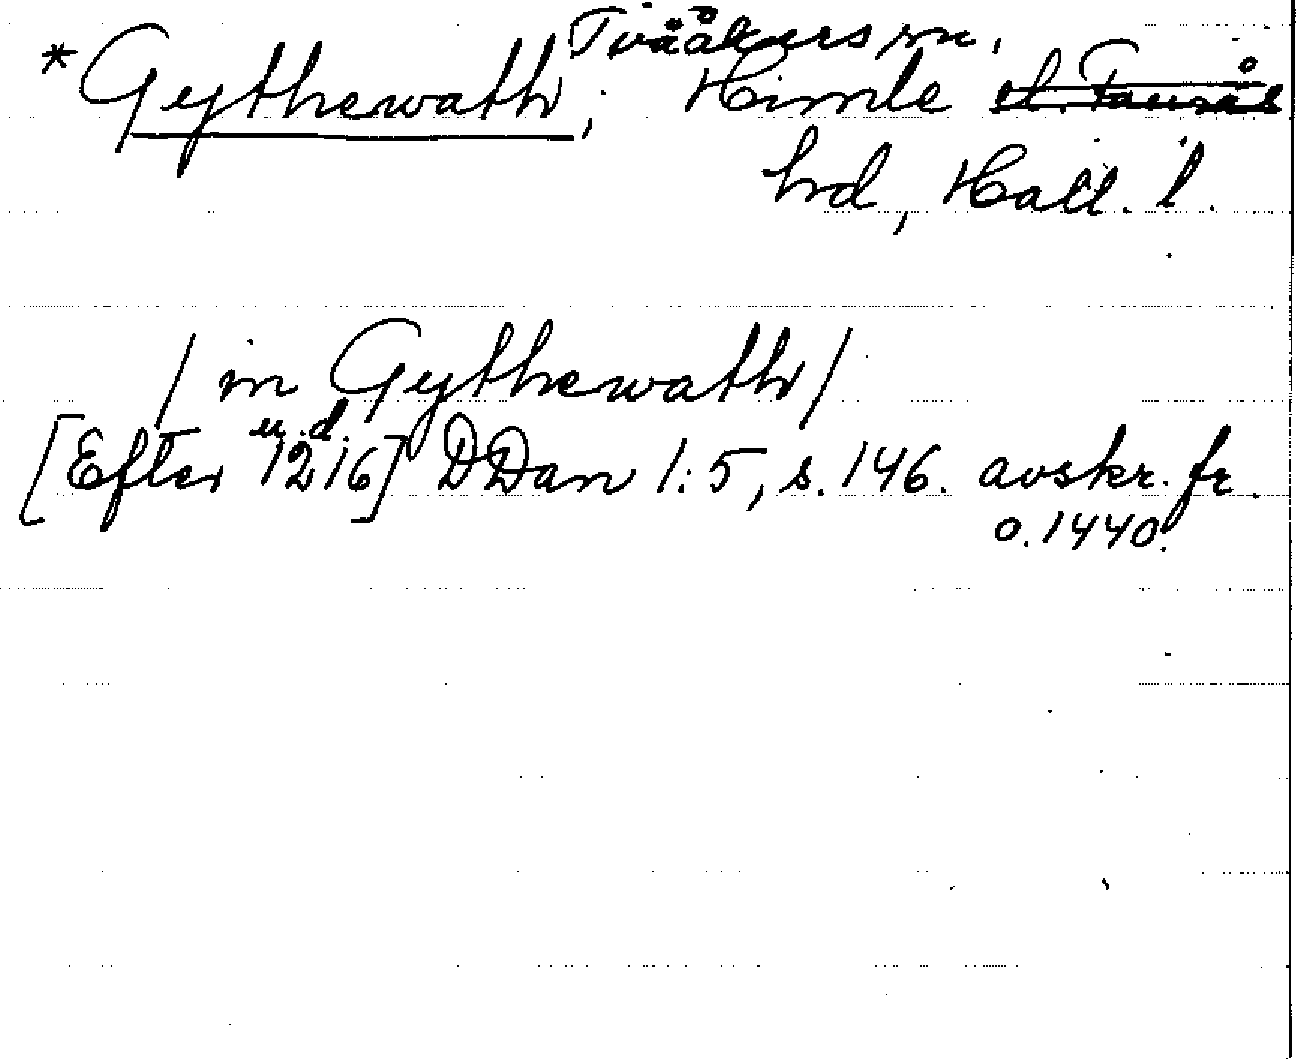 Tvååkers sn.
*Gythewath, Himle el. Faurås
hd, Hall. l.
/ in Gythewath /
u.d.
[Efter 1216] DDan 1:5, s. 146. avskr. fr.
o. 1440.